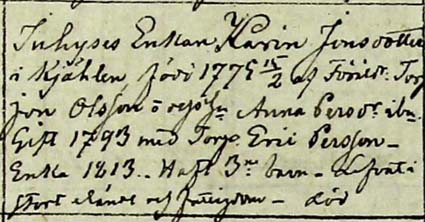 Inhyses Enkan Karin Jonsdotter
i Kjählen född 1775 15/2 af Föräldr: Torp
Jon Olsson o Anna Persdr ibm
Gift 1793 med Torp. Eric Persson –
Enka 1813. – Haft 3ne barn – Lefvat i
stort elände och fattigdom – död